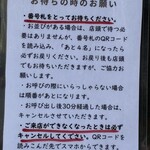 お待ちの時のお願い
・番号札をとってお待ちください。
・お並びがある場合は、店頭で待つ必
要はありませんが、番号札のQRコード
を読み込み、「あと4名」になったら
必ずお戻りください。お戻り後も店頭で
お待ちいただきますが、ご協力お
願いします。
・お呼びの際にいらっしゃらない場合
は順番があとになります。
・お呼び出し後30分経過した場合は、
キャンセルさせていただきます。
・ご来店ができなくなったときは必ず
キャンセルしてください。QRコードを
読みこんだ先でスマホからできます。